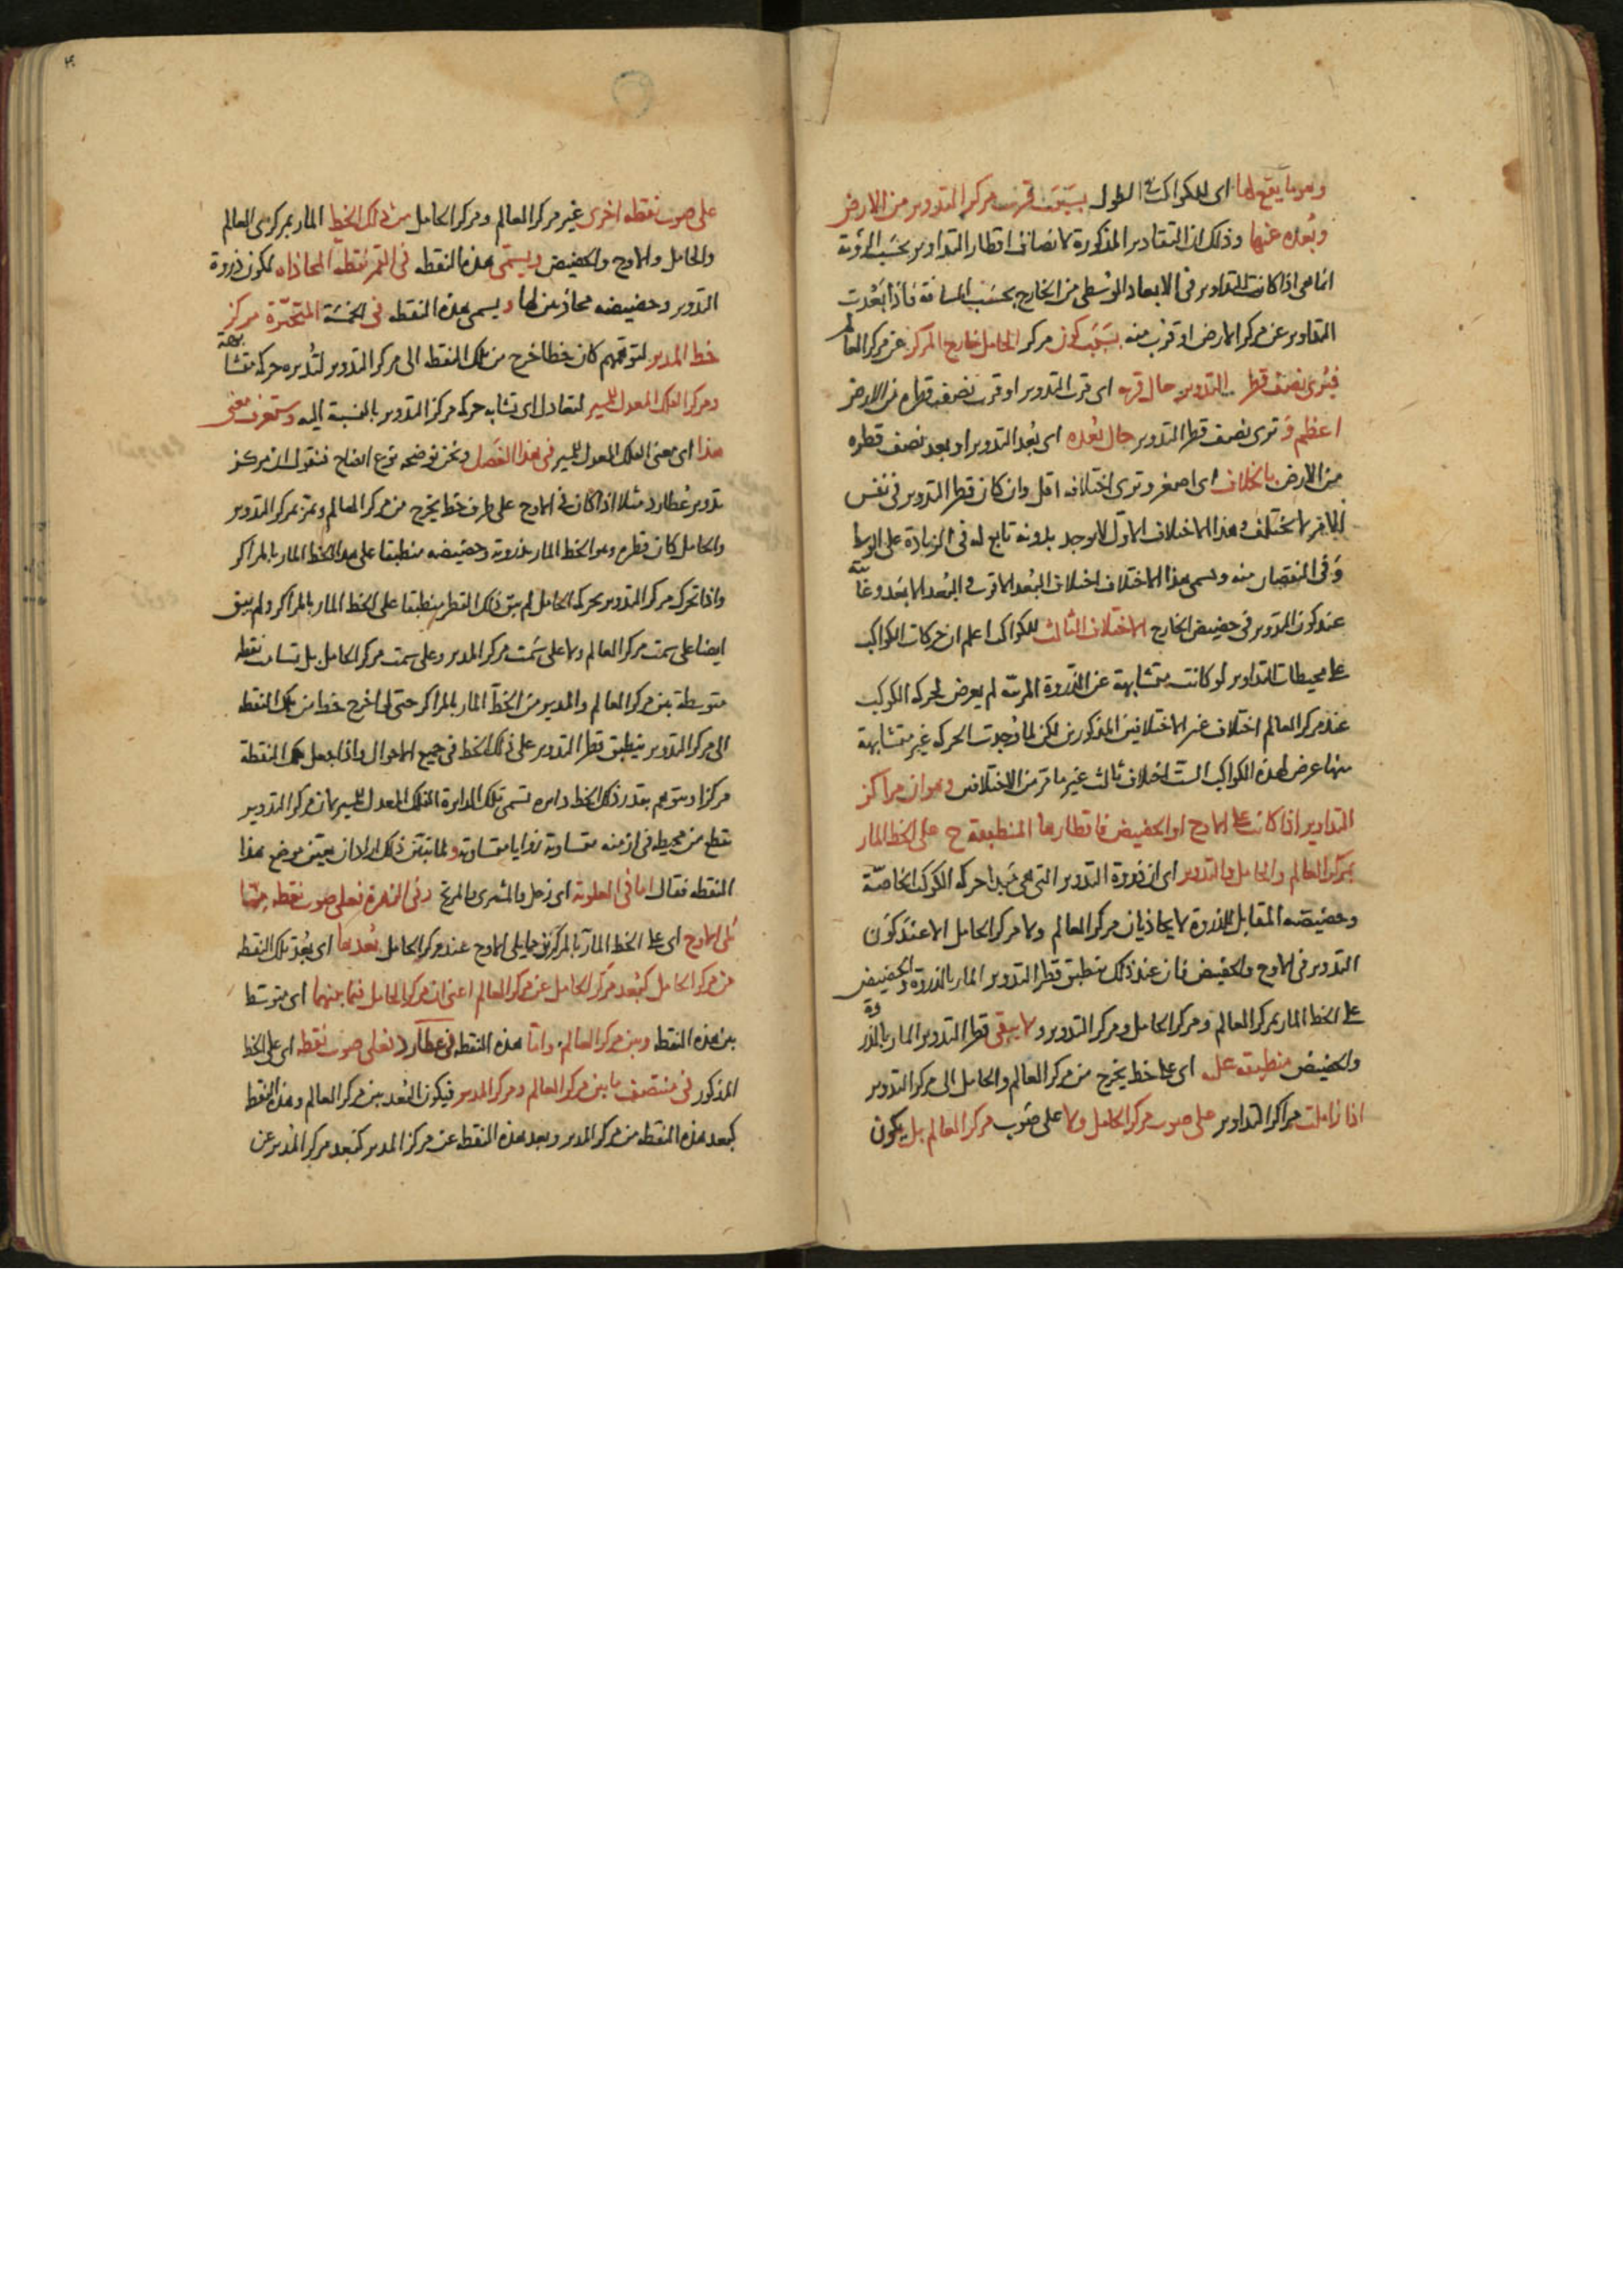 وهو ما يقع لها اى للكواكب فى الطول بسبب قرب مركز التدوير من الارض
وبعده عنها وذلك ان التقادير المذكورة لانصاف اقطار التداوير بحسب الرؤية
انما هى اذا كانت التداوير فى الابعاد الوسطى من الخارج بحسب المسافة فاذا بعدت
التداوير عن مركز الارض او قرب منه بسبب كون مركز الحامل خارج المركز عن مركز العالم
فيرى نصف قطر التدوير حال قربه اى قرب التدوير او قرب نصف قطره من الارض
اعظم و ترى نصف قطر التدوير حال بعده اى بعد التدوير او بعد نصف قطره
من الارض بالخلاف اى اصغر وترى اختلافه اقل وان كان قطر التدوير فى نفس
الامر لا يختلف وهذا الاختلاف الاول لا يوجد بدونه تابع له فى الزيادة على الوسط
وفى النقصان منه ويسمى هذا الاختلاف اختلاف البعد الاقرب و البعد الابعد وغايته
عند كون التدوير فى حضيض الخارج الاختلاف الثالث للكواكب اعلم ان حركات الكواكب
على محيطات التداوير لو كانت متشابهة عن الذروة المرئية لم يعرض لحركة الكوكب
عند مركز العالم اختلاف غير الاختلافين المذكورين لكن لما وجدت الحركة غير متشابهة
منها عرض لهذه الكواكب الست اختلاف ثالث غير ما مر من الاختلافين وهو ان مراكز
التداوير اذا كانت على الاوج او الحضيض فاقطارها المنطبقة ح على الخط المار
بمركز العالم والحامل والتدوير اى ان ذروة التدوير التى هى مبدا حركة الكوكب الخاصة
وحضيضه المقابل للذروة لا يحاذيان مركز العالم ولا مركز الحامل الا عند كون
التدوير فى الاوج والحضيض فان عند ذلك ينطبق قطر التدوير المار بالذروة والحضيض
على الخط المار بمركز العالم ومركز الحامل ومركز التدوير ولا يبقى قطر التدوير المار بالذروة
والحضيض منطبقة عليه اى على خط يخرج من مركز العالم والحامل الى مركز التدوير
اذا زايلت مراكز التداوير على صوب مركز الحامل ولا على صوب مركز العالم بل يكون
على صوب نقطه اخرى غير مركز العالم ومركز الحامل من ذلك الخط المار بمركزى العالم
والحامل والاوج والحضيض ويسمى هذه النقطه فى القمر نقطه المحاذاه لكون ذروة
التدوير وحضيضه محاذيين لها ويسمى هذه النقطه فى الخمسة المتحيرة مركز
خط المدير لتوهمهم كان خطا خرج من تلك النقطه الى مركز التدوير لتديره حركه متشابهة
ومركز الفلك المعدل للمسير لتعادل اى تشابه حركه مركز التدوير بالنسبة اليه وستعرف معنى
هذا اى معنى الفلك المعدل للمسير فى هذا الفصل ونحن نوضحه نوع ايضاح فنقول ان مركز
تدوير عطارد مثلا اذا كان فى الاوج على طرف خط يخرج من مركز العالم ويمر بمركز التدوير
والحامل كان قطره وهو الخط المار بذروته وحضيضه منطبقا على هذا الخط المار بالمراكز
واذا تحرك مركز التدوير بحركه الحامل لم يبق ذلك القطر منطبقا على الخط المار بالمراكز ولم يبق
ايضا على سمت مركز العالم ولا على سمت مركز المدير وعلى سمت مركز الحامل بل تسامت نقطه
متوسطة بين مركز العالم والمدير من الخط المار بالمراكز حتى لو اخرج خط من تلك النقطه
الى مركز التدوير ينطبق قطر التدوير على ذلك الخط فى جميع الاحوال واذا جعل تلك النقطة
مركزا ويتوهم بقدر ذلك الخط دايره تسمى تلك الدايرة الفلك المعدل للمسير لان مركز التدوير
يقطع من محيطه فى ازمنه متساوية زوايا متساوية ولما تبين ذلك اراد ان يعين موضع هذا
النقطه فقال اما فى العلوية اى زحل والمشترى والمريخ وفى الزهرة فعلى صوب نقطه مما
يلى الاوج اى على الخط المار بالمركزين مما يلى الاوج عند مركز الحامل بعدها اى بعد تلك النقطه
من مركز الحامل كبعد مركز الحامل عن مركز العالم اعنى ان مركز الحامل فيما بينهما اى متوسط
بين هذه النقطه وبين مركز العالم واما هذه النقطه فى عطارد فعلى صوب نقطه اى على الخط
المذكور فى منتصف ما بين مركز العالم ومركز المدير فيكون البعد بين مركز العالم وهذه النقط
كبعد هذه النقطه من مركز المدير وبعد هذه النقطه عن مركز المدير كبعد مركز المدير عن